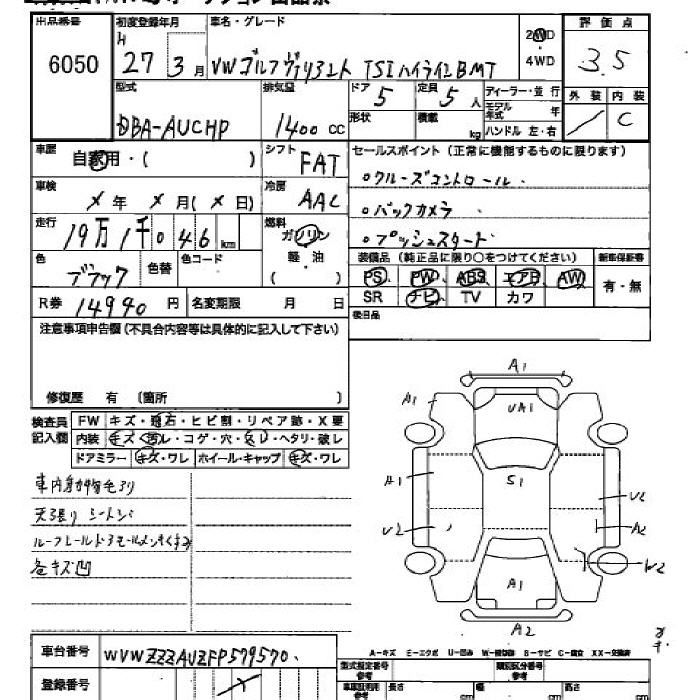 出品番号
6050
初度登録年月
H
27 3月
車名・グレード
VWゴルフヴァリアント TSIハイラインBMT
2WD
4WD
評価点
3.5
外装 内装
C
型式
DBA-AUCHP
排気量
1400 CC
ドア
5
形状
定員
5人
積載
kg
ディーラー・並行
モデル年式 年
ハンドル 左・右
車歴
自家用・( )
シフト
FAT
車検
メ年 メ月(メ日)
冷房
AAC
走行
19万1千046km
燃料
ガソリン
軽・油
( )
色
ブラック
色替
色コード
R券 14990円
名変期限 月 日
セールスポイント(正常に機能するものに限ります)
○クルーズコントロール
○バックカメラ
○プッシュスタート
装備品(純正品に限り○をつけてください)
PS PW ABS エアB AW
SR ナビ TV カワ
新車保証書
有・無
後日品
注意事項申告欄(不具合内容等は具体的に記入して下さい)
修復歴 有 (箇所 )
検査員記入欄
FW キズ・飛石・ヒビ割・リペア跡・X要
内装 キズ・汚レ・コゲ・穴・スレ・ヘタリ・破レ
ドアミラー キズ・ワレ ホイール・キャップ キズ・ワレ
天張り シートシミ
各キズ凹
A1
A1
UA1
A1
S1
U2
U2
A2
A1
W2
A2
A-キズ E-エクボ U-凹み W-補修跡 S-サビ C-腐食 XX-交換済
車台番号
WVWZZZAUZFP579570
登録番号
型式指定番号
参考
類別区分番号
参考
長さ cm
幅 cm
高さ cm